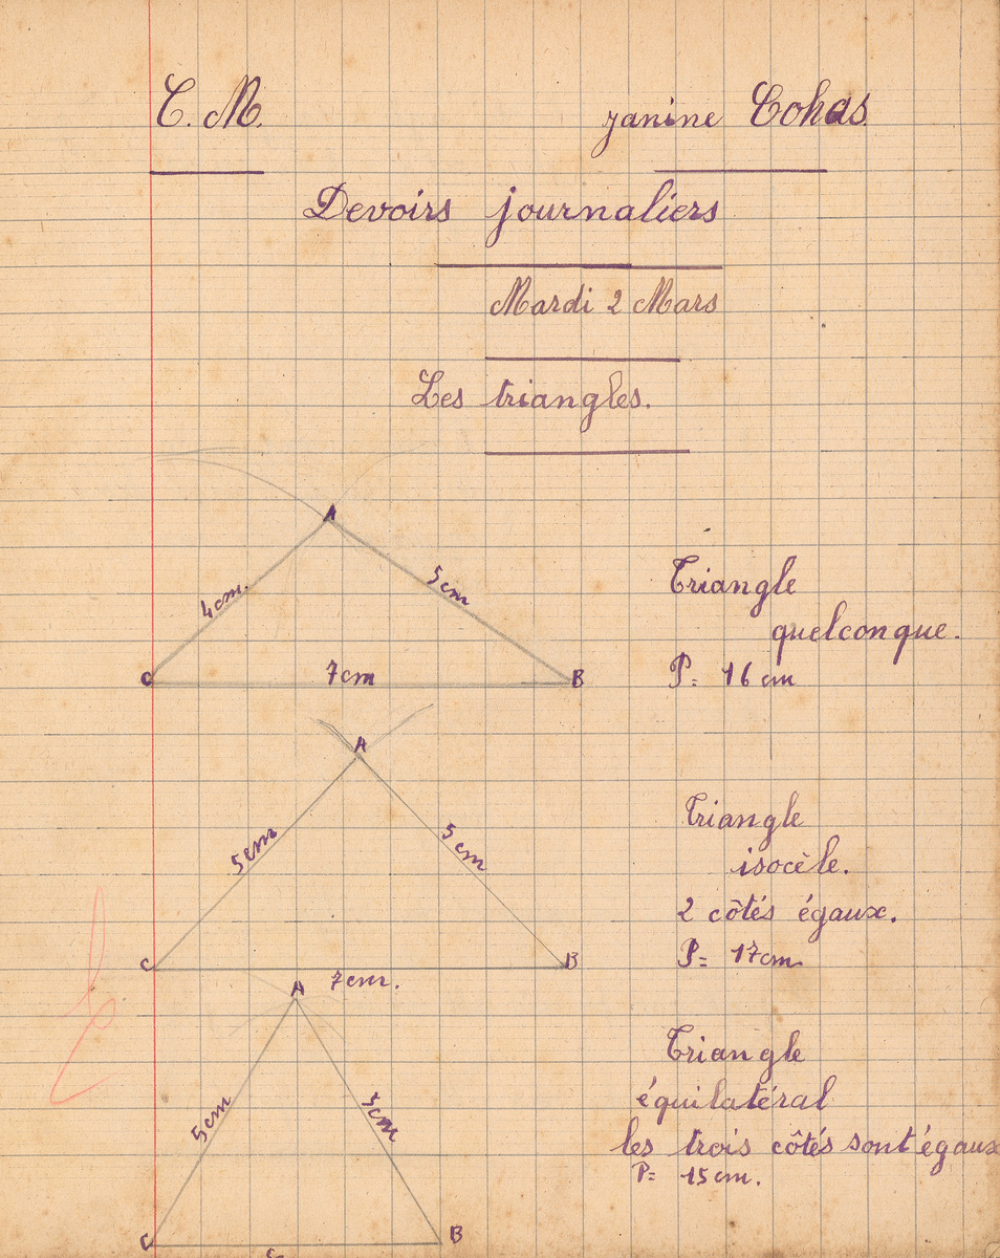 C. M. Janine Cohas
Devoirs journaliers
Mardi 2 Mars
Les triangles.
A
4cm. 5cm
Triangle
quelconque.
C 7cm B
P= 16 cm
A
5cm 5cm
Triangle
isocèle.
2 côtés égaux.
P= 17cm
C 7cm. B
A
5cm 5cm
Triangle
équilatéral
les trois côtés sont égaux
P= 15cm.
C B